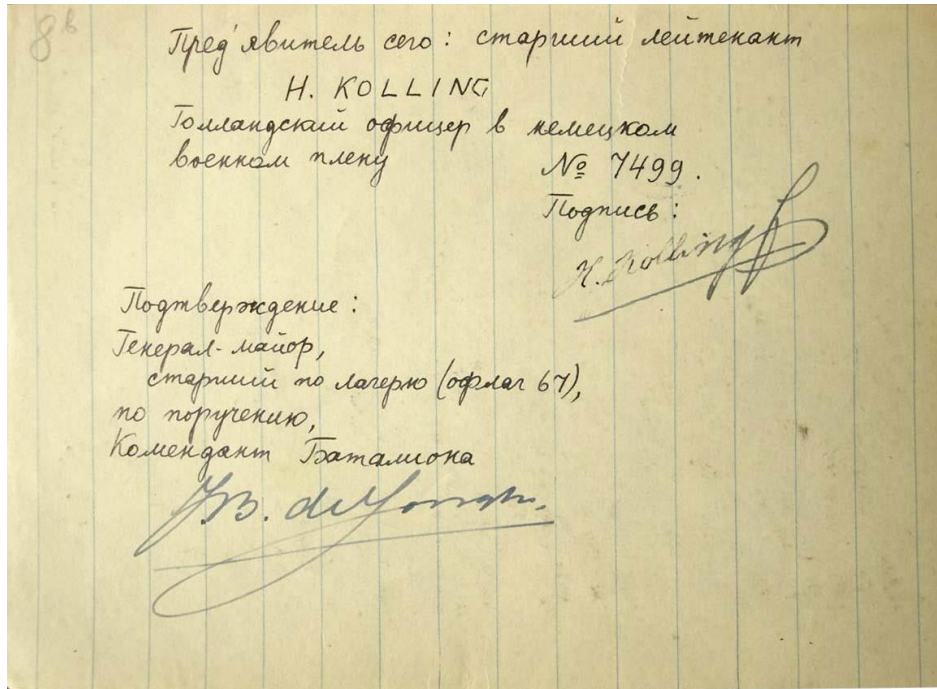 8в
Пред'явитель сего: старший лейтенант
H. KOLLING
Голландский офицер в немецком
военном плену № 7499.
Подпись:
H. Kolling
Подтверждение:
Генерал-майор,
старший по лагерю (офлаг 67),
по поручению,
Комендант Баталиона